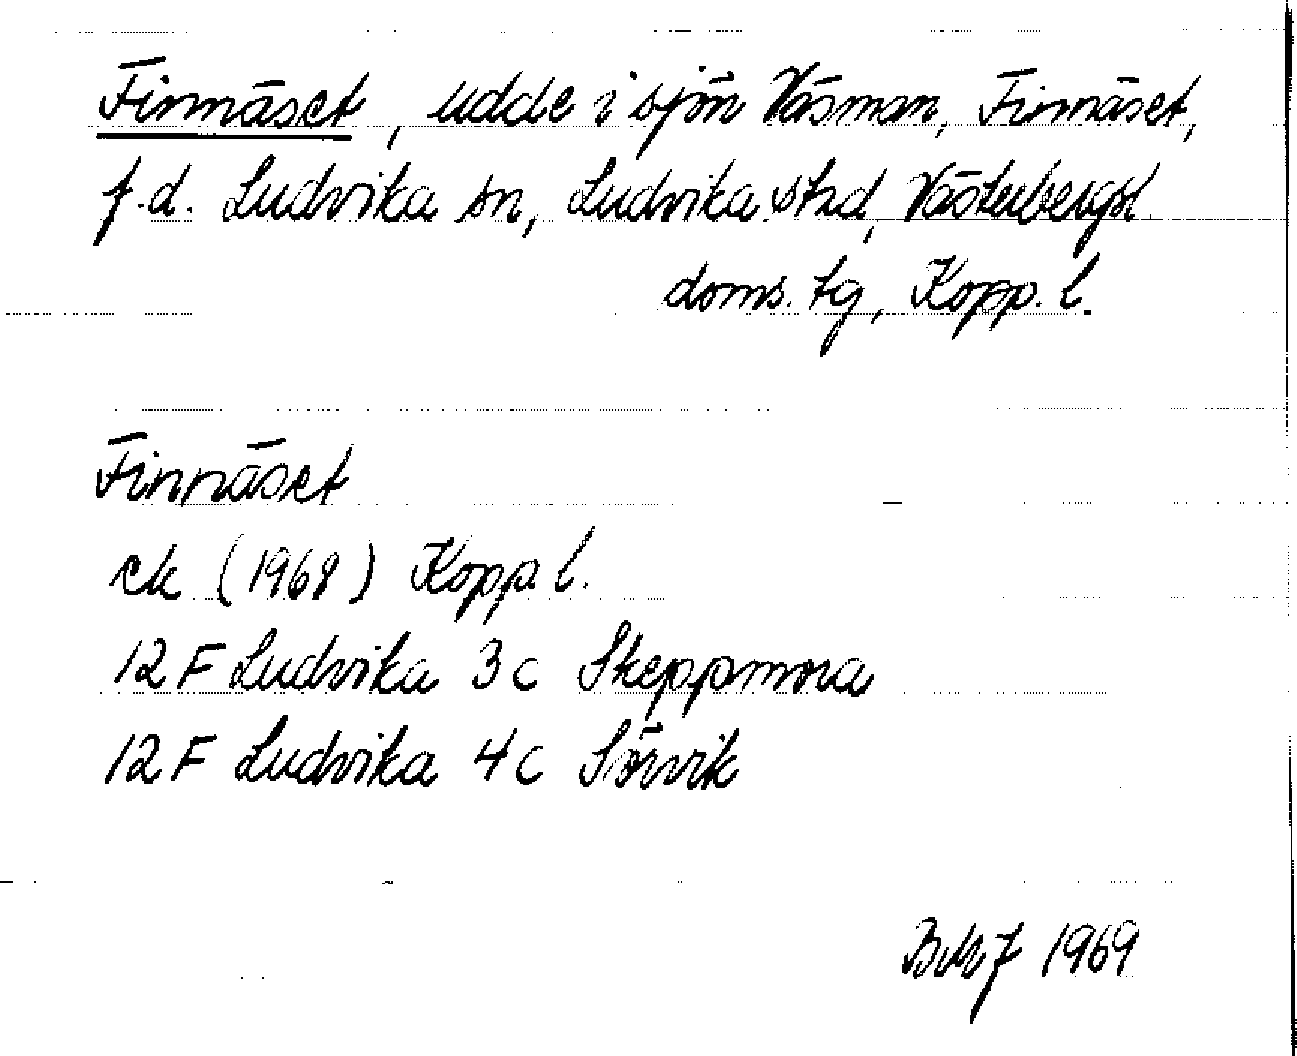 Finnäset, udde i sjön Väsman, Finnäset,
f.d. Ludvika sn, Ludvika stad, Västerbergsl.
doms. tg, Kopp. l.
Finnäset
ek (1968) Kopp. l.
12 F Ludvika 3 c Skeppmora
12 F Ludvika 4 c Sörvik
1969